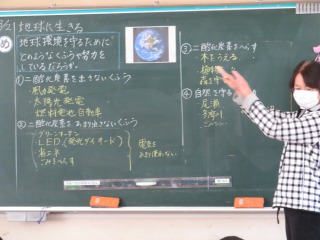 地球に生きる
め 地球環境を守るために
どのようなくふうや努力を
しているだろうか。
①二酸化炭素を出さないくふう
・風力発電
・太陽光発電
・燃料電池自動車
②二酸化炭素をあまり出さないくふう
・グリーンカーテン
・LED(発光ダイオード)
・省エネ
・ごみをへらす
電気を
あまり使わない
③二酸化炭素をへらす
・木をうえる
・植林
④自然を守る
・尾瀬